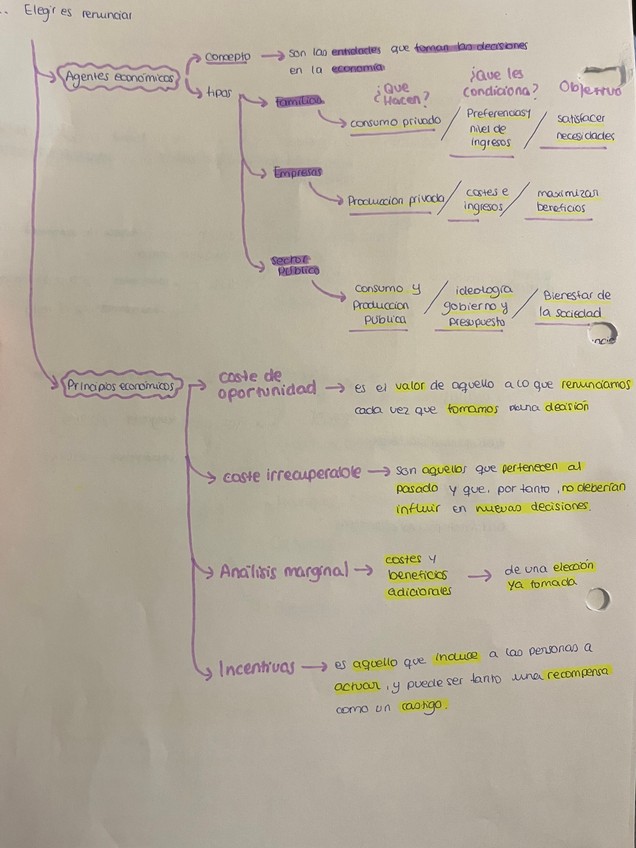 .. Elegir es renunciar
Agentes económicos
concepto → son las entidades que toman las decisiones
en la economía
tipos
¿Que Hacen?
¿Que les condiciona?
Objetivo
Familias
consumo privado / Preferencias y nivel de ingresos / satisfacer necesidades
Empresas
Produccion privada / costes e ingresos / maximizar beneficios
sector Público
consumo y Produccion Publica / ideología gobierno y presupuesto / Bienestar de la sociedad
Principios económicos
coste de oportunidad → es el valor de aquello a lo que renunciamos
cada vez que tomamos una decisión
coste irrecuperable → son aquellos que pertenecen al
pasado y que, por tanto, no deberían
influir en nuevas decisiones.
Análisis marginal → costes y beneficios adicionales → de una elección ya tomada
Incentivas → es aquello que induce a las personas a
actuar, y puede ser tanto una recompensa
como un castigo.